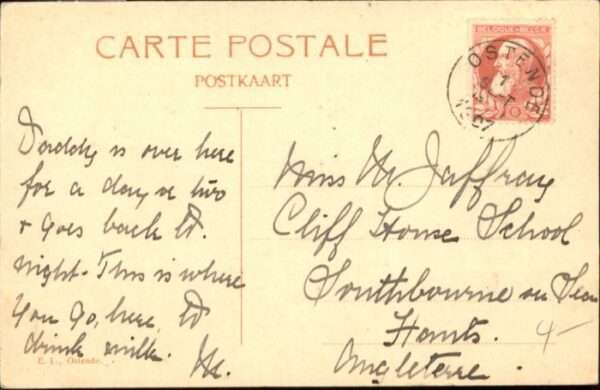 CARTE POSTALE
POSTKAART
BELGIQUE BELGIË
OSTENDE
1907
Daddy is over here
for a day or two
& goes back to.
night. This is where
you go, here, to
drink milk.
E. L., Ostende.
Miss M. Jaffray
Cliff House School
Southbourne on Sea
Hants.
Angleterre.
4-